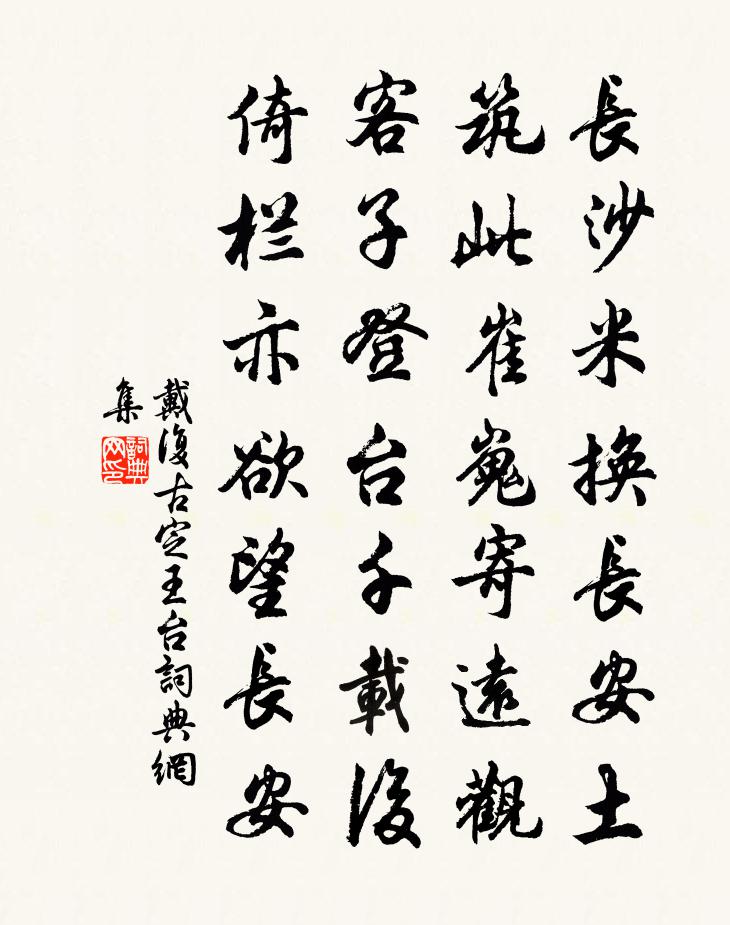 長沙米換長安土
筑此崔嵬寄遠觀
客子登台千載後
倚栏亦欲望長安
戴復古定王台詞典網
集
詞典網印